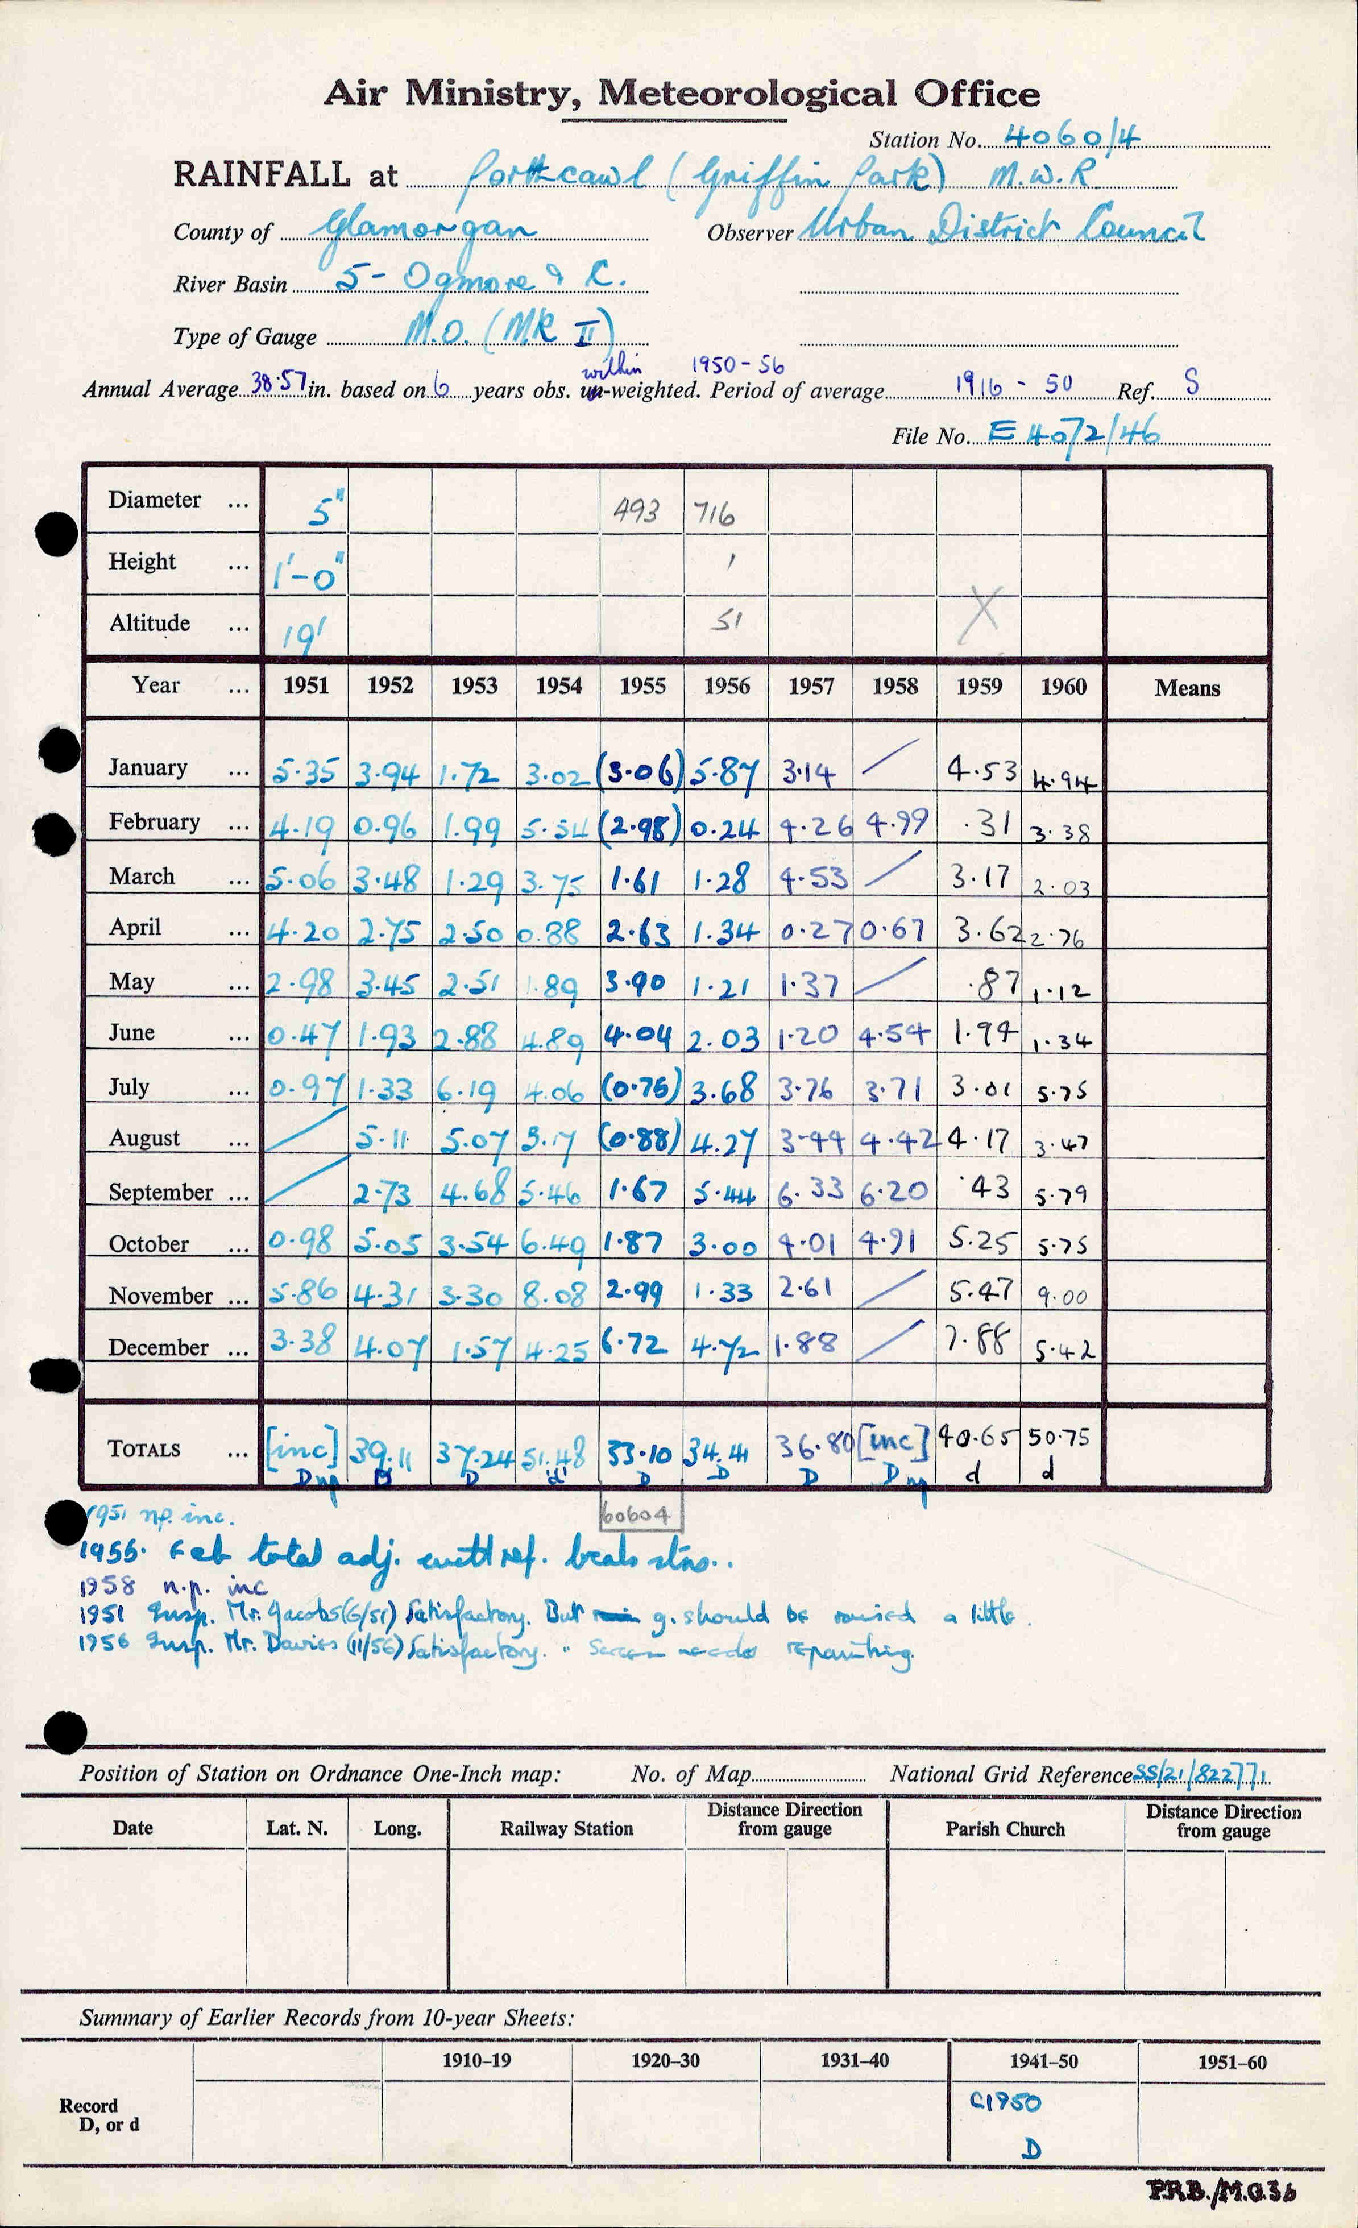 Air Ministry, Meteorological Office
Station No. 4060/4
RAINFALL at Porthcawl (Griffin Park) M.W.R.
County of Glamorgan Observer Urban District Council
River Basin 5 - Ogmore & C.
Type of Gauge M.O. (MK II)
within 1950-56
Annual Average 38.57 in. based on 6 years obs. un-weighted. Period of average 1916 - 50 Ref. S
File No. E 4072/46
Diameter ... 5" 493 716
Height ... 1'-0" 1
Altitude ... 19' 51 X
Year ... 1951 1952 1953 1954 1955 1956 1957 1958 1959 1960 Means
January ... 5.35 3.94 1.72 3.02 (3.06) 5.87 3.14 / 4.53 4.94
February ... 4.19 0.96 1.99 5.54 (2.98) 0.24 4.26 4.99 .31 3.38
March ... 5.06 3.48 1.29 3.75 1.61 1.28 4.53 / 3.17 2.03
April ... 4.20 2.75 2.50 0.88 2.63 1.34 0.27 0.67 3.62 2.76
May ... 2.98 3.45 2.51 1.89 3.90 1.21 1.37 / .87 1.12
June ... 0.47 1.93 2.88 4.89 4.04 2.03 1.20 4.54 1.94 1.34
July ... 0.97 1.33 6.19 4.06 (0.75) 3.68 3.76 3.71 3.01 5.75
August ... / 5.11 5.07 3.17 (0.88) 4.27 3.44 4.42 4.17 3.47
September ... / 2.73 4.68 5.46 1.67 5.44 6.33 6.20 .43 5.79
October ... 0.98 5.05 3.54 6.49 1.87 3.00 4.01 4.91 5.25 5.75
November ... 5.86 4.31 3.30 8.08 2.99 1.33 2.61 / 5.47 9.00
December ... 3.38 4.07 1.57 4.25 6.72 4.72 1.88 / 7.88 5.42
TOTALS ... [inc] 39.11 37.24 51.48 33.10 34.41 36.80 [inc] 40.65 50.75
D np D D d D D D D np d d
60604
1951 np. inc.
1955. Feb total adj. with ref. stns..
1958 n.p. inc
1951 Insp. Mr. Jacobs (6/51) Satisfactory. But g. should be raised a little.
1956 Insp. Mr. Davies (11/56) Satisfactory. " Screen needs repainting.
Position of Station on Ordnance One-Inch map: No. of Map National Grid Reference SS/21/822771
Date Lat. N. Long. Railway Station Distance Direction from gauge Parish Church Distance Direction from gauge
Summary of Earlier Records from 10-year Sheets:
1910–19 1920–30 1931–40 1941–50 1951–60
Record D, or d C1950
D
P.R.B./M.O.36